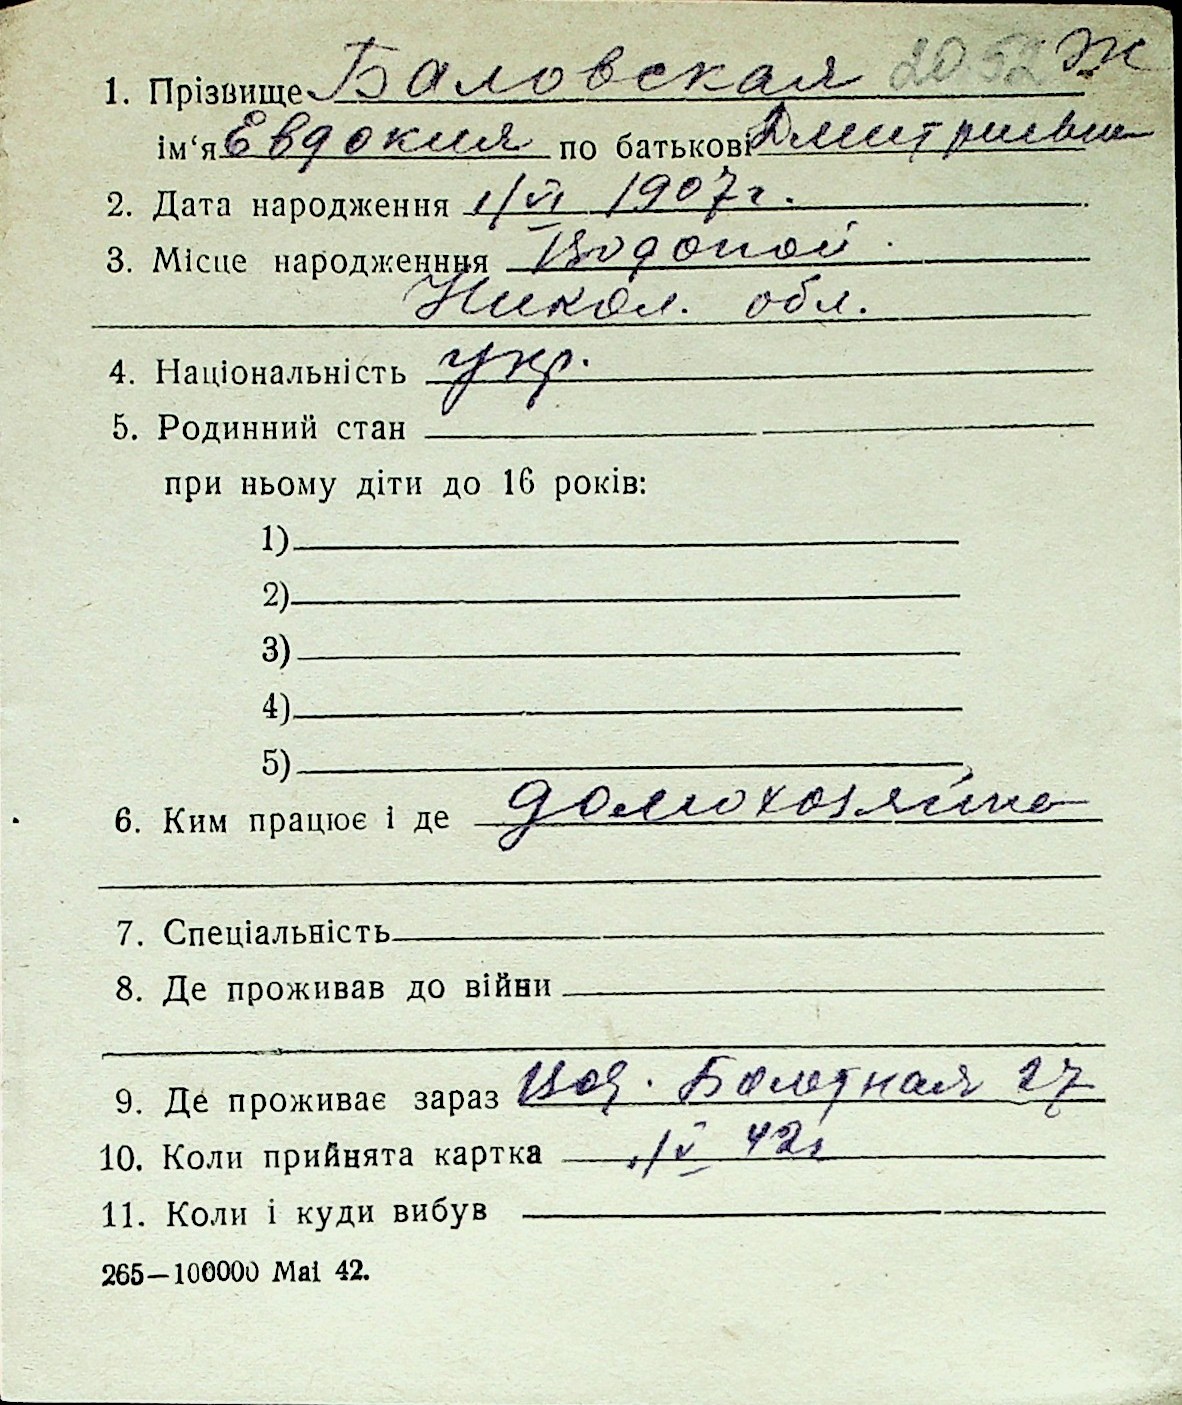 1. Прізвище Баловская 2052 Ж
ім‘я Евдокия по батькові Дмитриевна
2. Дата народження 1/VI 1907 г.
3. Місце народженння Водопой
Никол. обл.
4. Національність укр.
5. Родинний стан
при ньому діти до 16 років:
1)
2)
3)
4)
5)
6. Ким працює і де домохозяйка
7. Спеціальність
8. Де проживав до війни
9. Де проживає зараз Вод. Болотная 27
10. Коли прийнята картка /V 42г
11. Коли і куди вибув
265—100000 Mai 42.